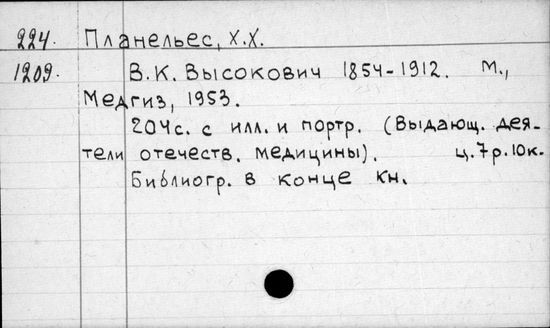 224. Планельес, Х.Х.
1209. В.К. Высокович 1854-1912. М.,
Медгиз, 1953.
204с. с илл. и портр. (Выдающ. дея-
тели отечеств. медицины). ц.7р.10к.
Библиогр. в конце кн.